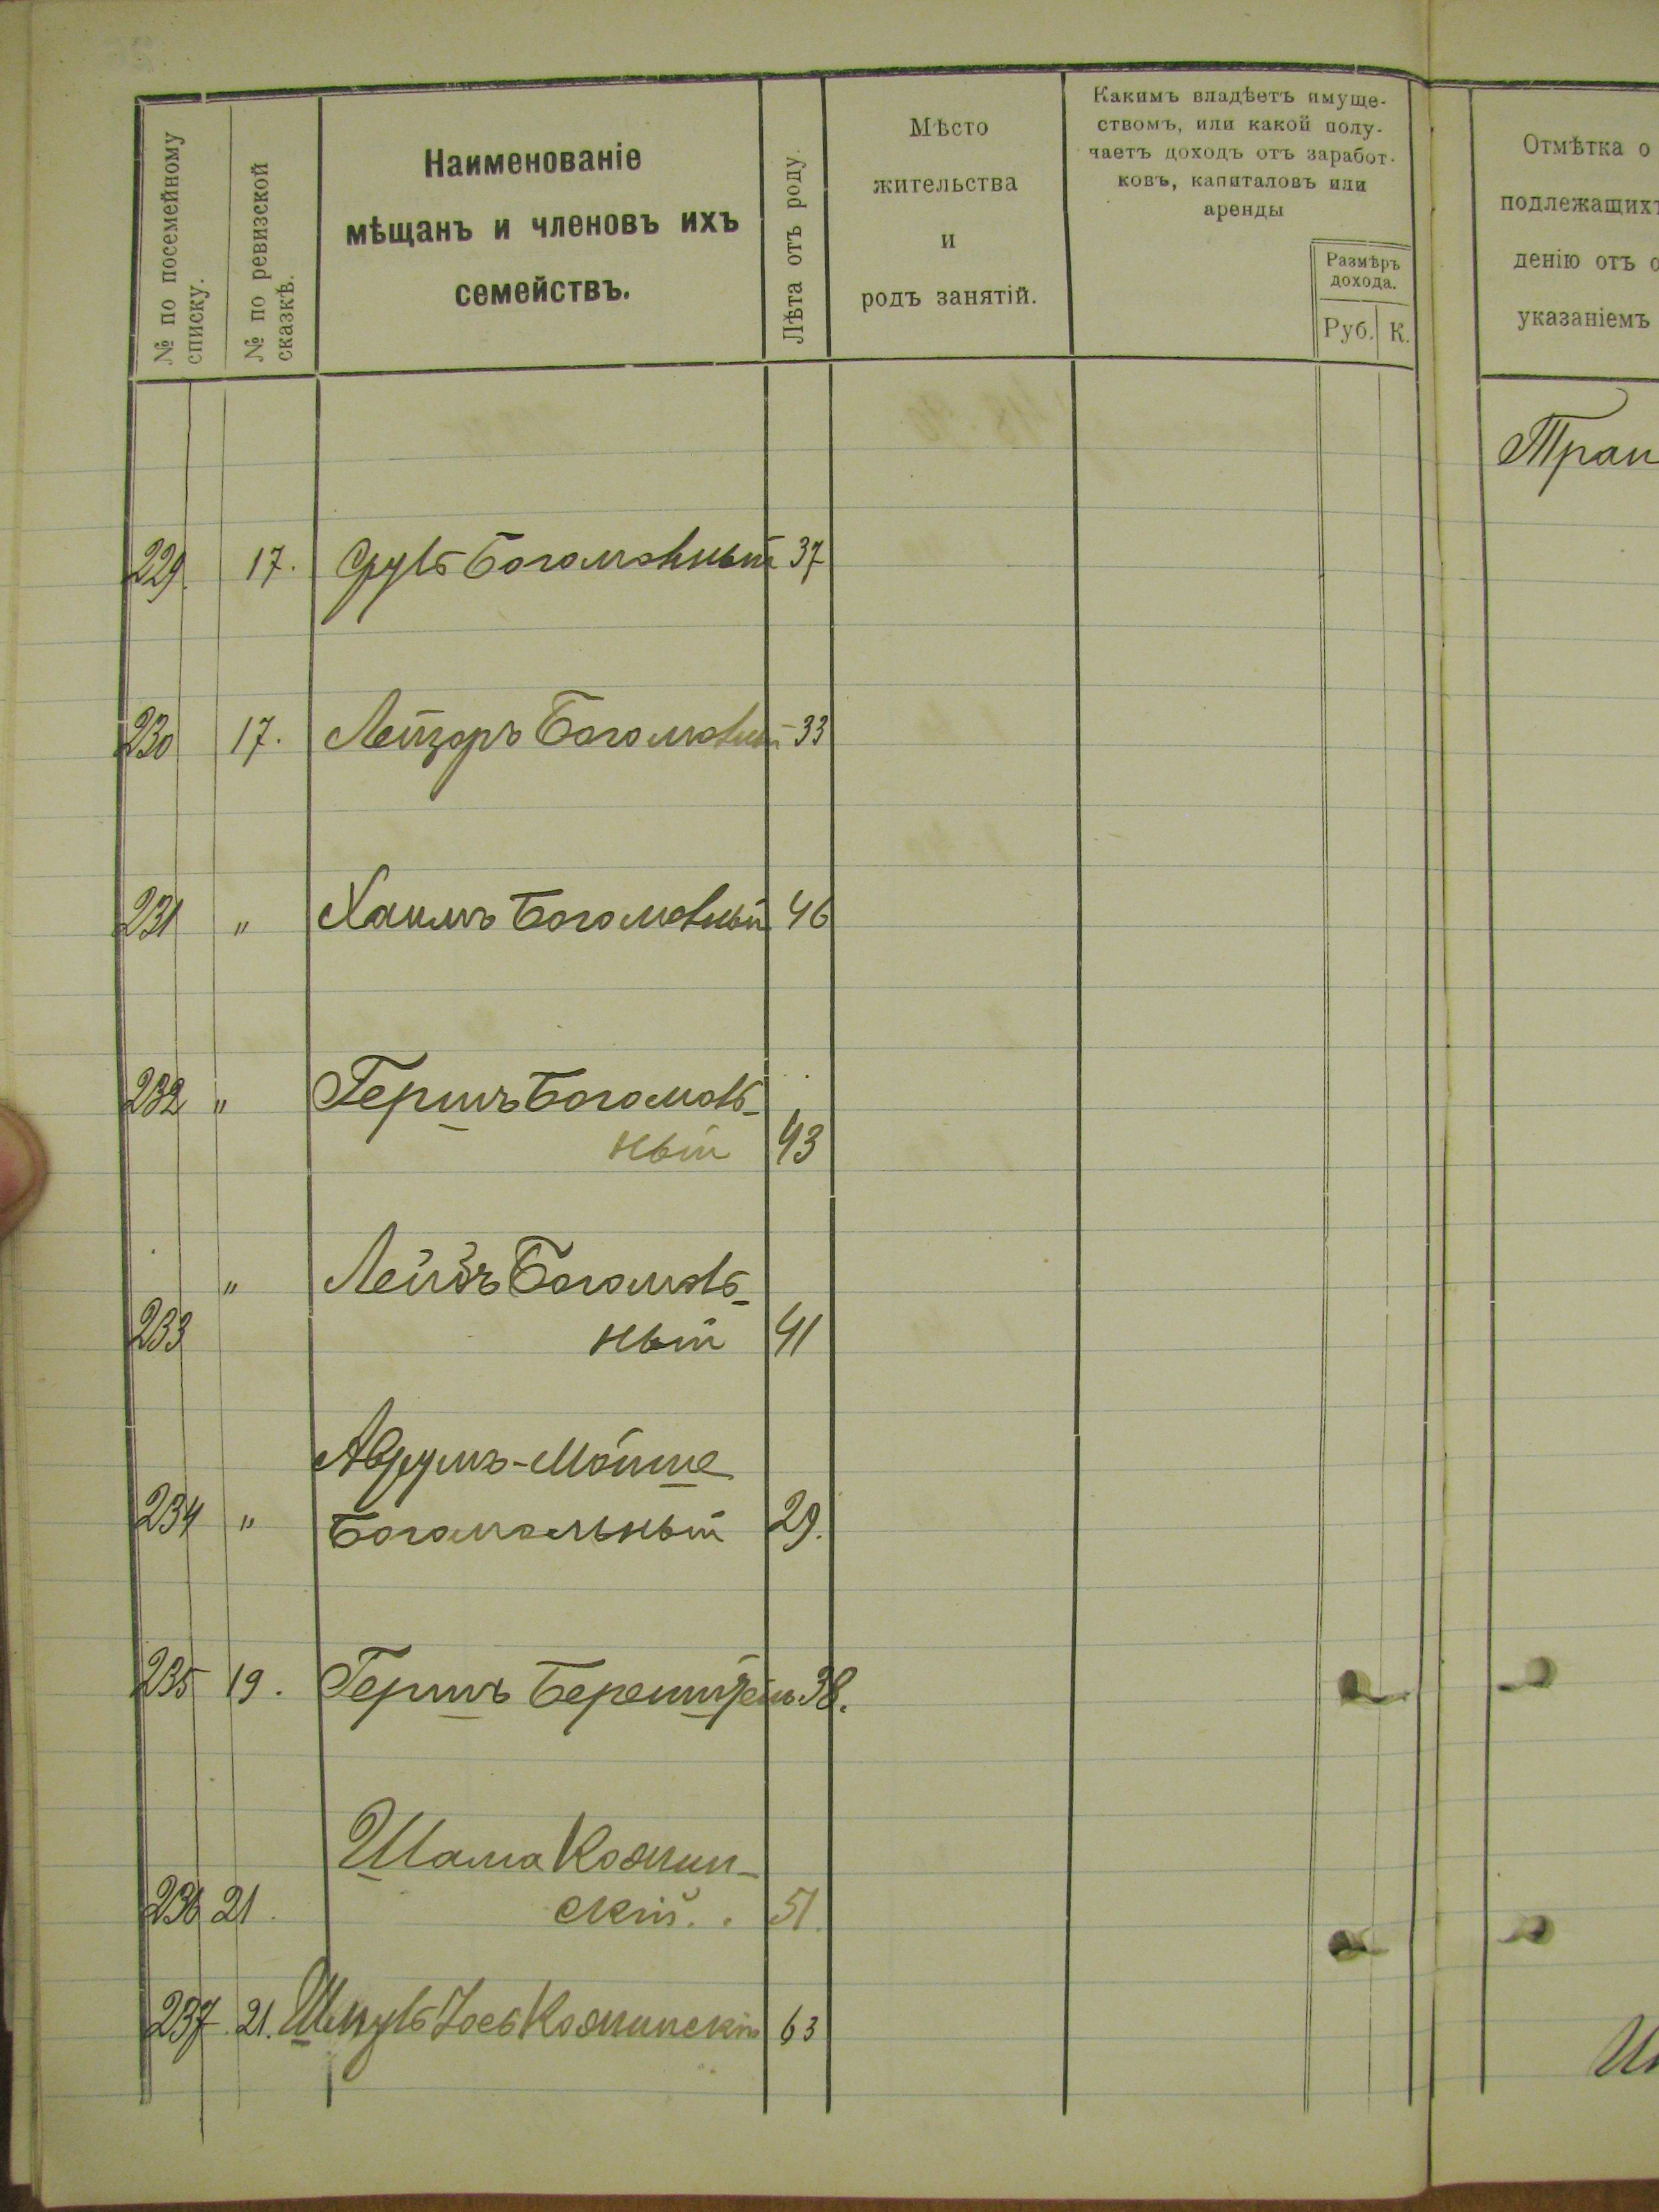 № по посемейному
списку.
№ по ревизской
сказкѣ.
Наименованіе
мѣщанъ и членовъ ихъ
семействъ.
Лѣта отъ роду.
Мѣсто
жительства
и
родъ занятій.
Какимъ владѣетъ имуще-
ствомъ, или какой полу-
чаетъ доходъ отъ заработ-
ковъ, капиталовъ или
аренды
Размѣръ
дохода.
Руб. К.
Отмѣтка о
подлежащихъ
денію отъ о
указаніемъ
229. 17. Сруль Богомольный 37
230 17. Лейзоръ Богомольный 33
231 " Хаимъ Богомольный 46
232 " Гершъ Богомоль-
ный 43
" Лейбъ Богомоль-
233 ный 41
Аврумъ-Мойше
234 " Богомольный 29.
235 19. Гершъ 38.
Шама Кожин-
236 21. скій. 51.
237 21. Шмуль Іось Кожинскій 63